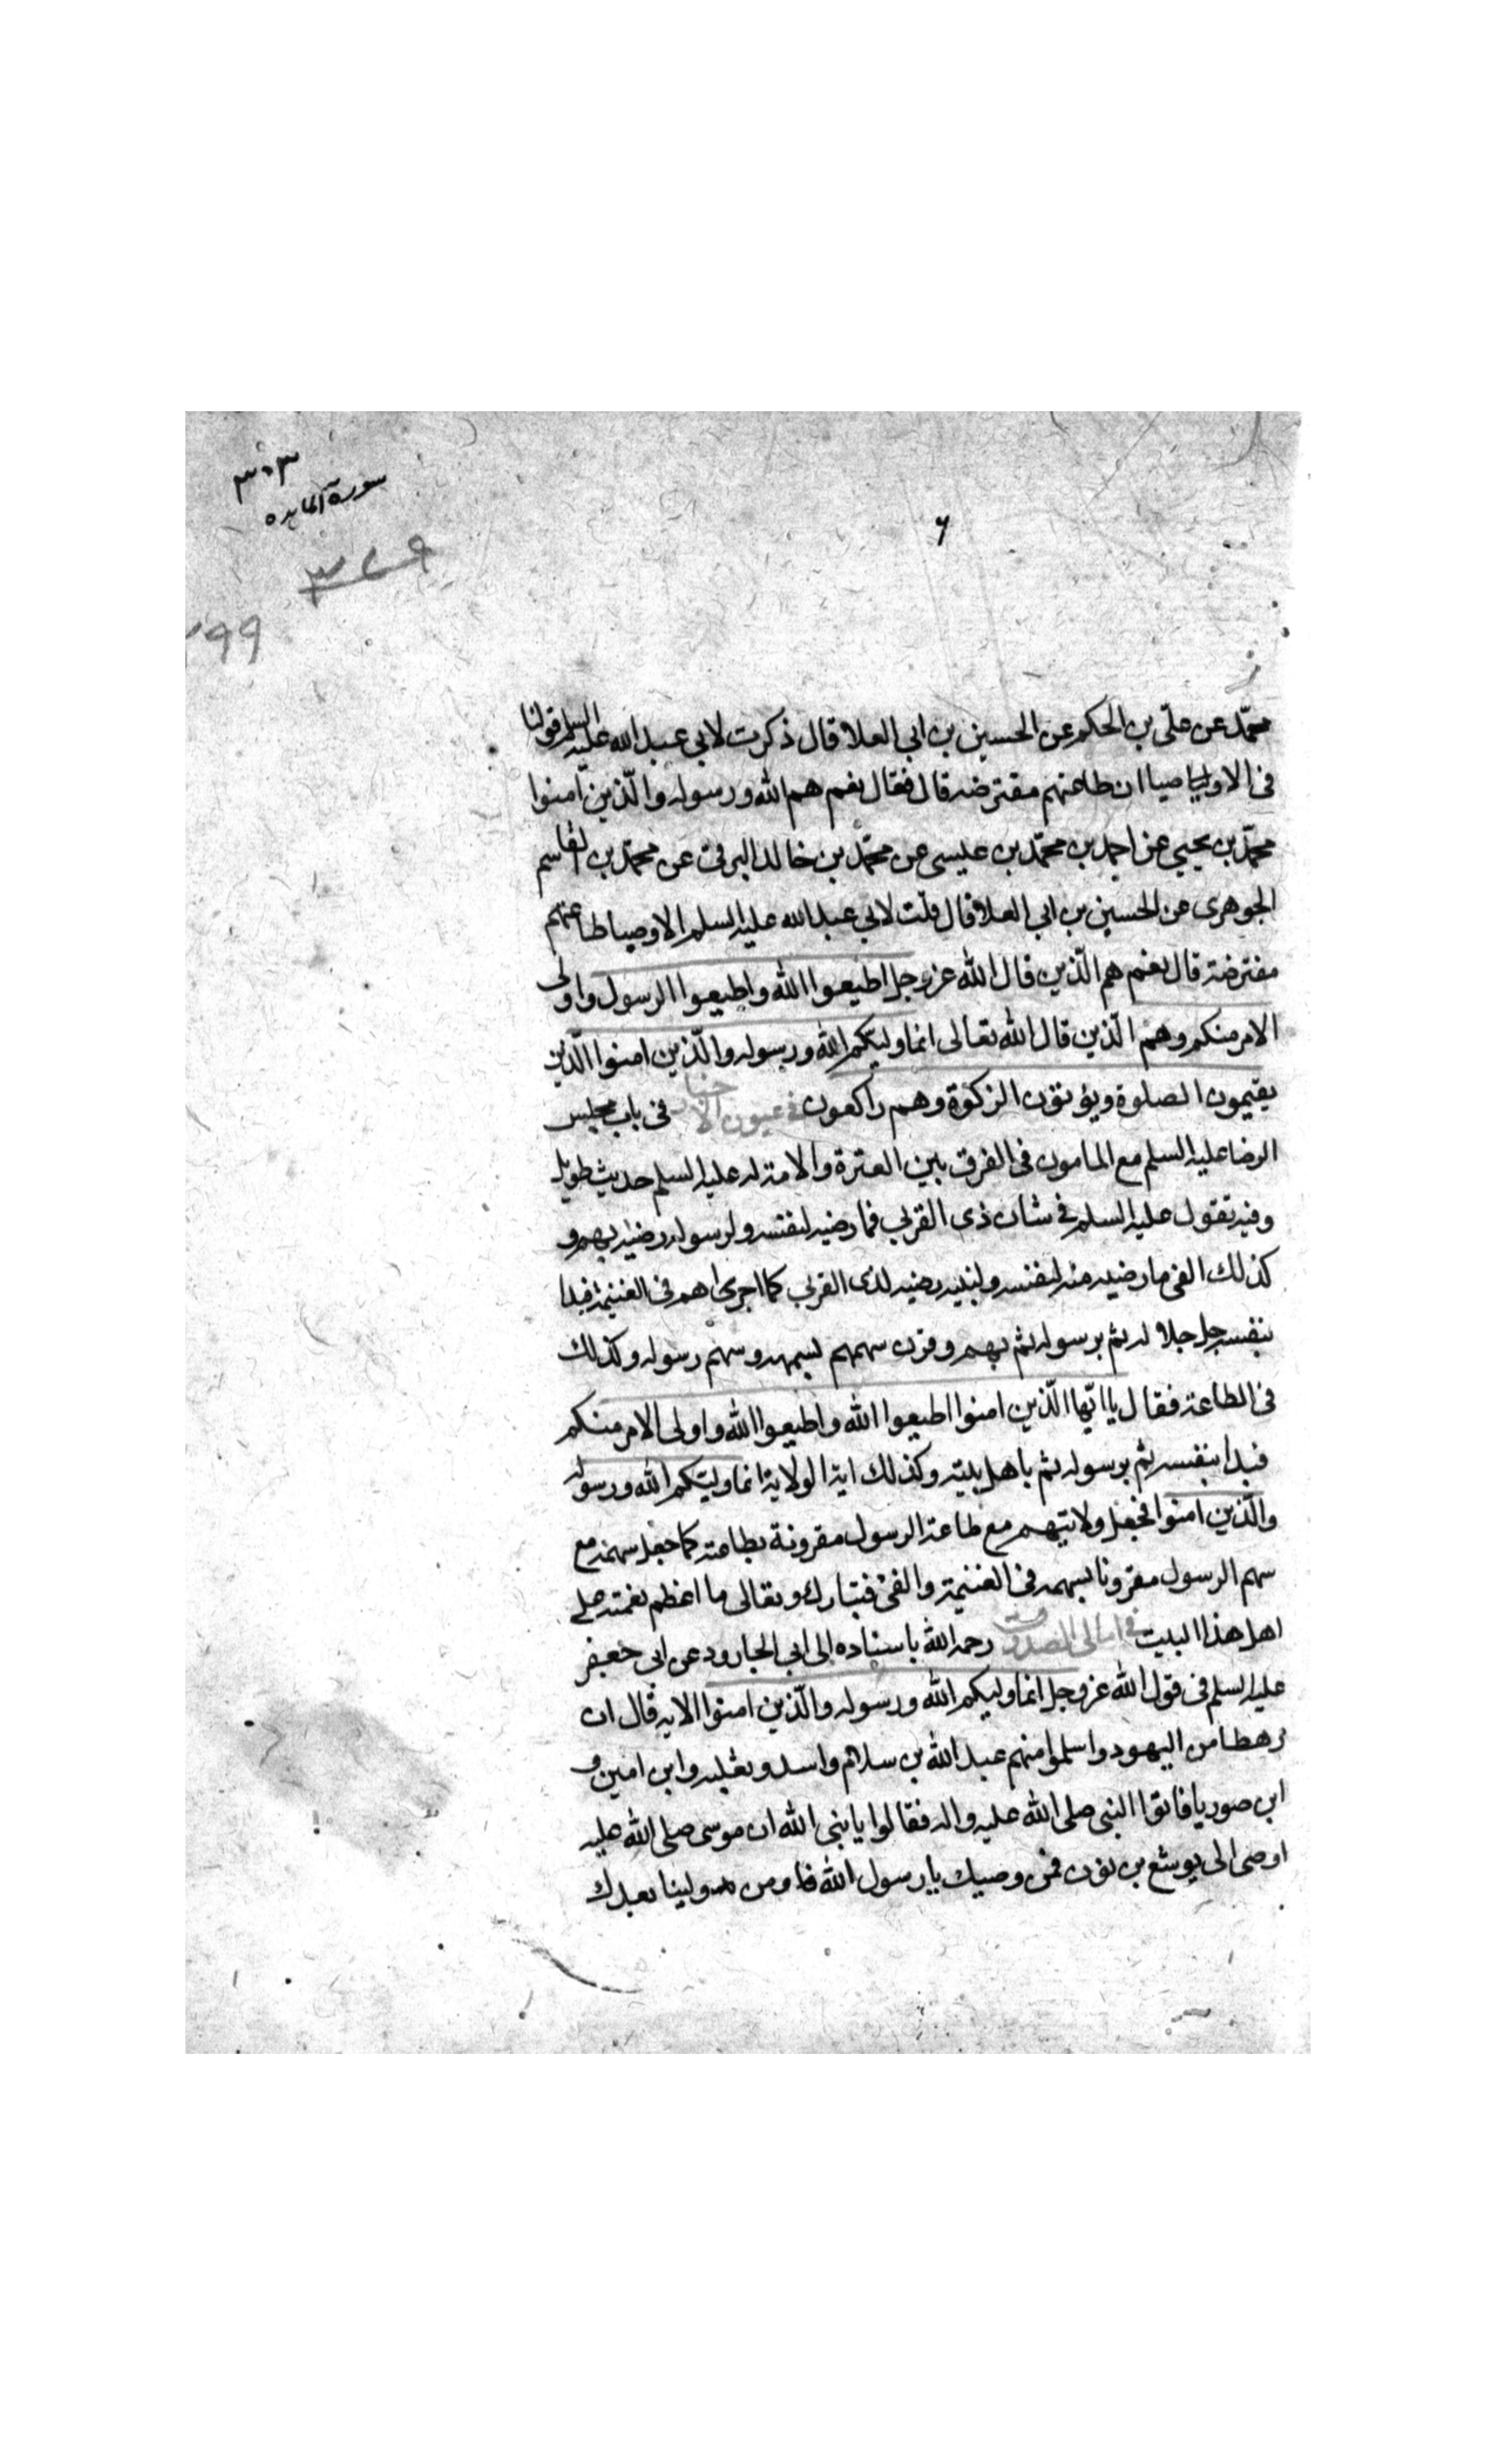 ٣٠٣
سورة المايده
٣٧٩
٢٩٩
محمّد عن علىّ بن الحكم عن الحسين بن ابى العلا قال ذكرت لابى عبد الله عليه السلم قولنا
فى الاوصيا ان طاعتهم مفترضه قال فقال نعم هم الله ورسوله والّذين امنوا
محمّد بن يحيى عن احمد بن محمّد بن عيسى عن محمّد بن خالد البرقى عن محمّد بن القاسم
الجوهرى عن الحسين بن ابى العلا قال قلت لابى عبد الله عليه السلم الاوصيا طاعتهم
مفترضة قال نعم هم الّذين قال الله عز وجل اطيعوا الله واطيعوا الرسول واولى
الامر منكم وهم الّذين قال الله تعالى انما وليّكم الله ورسوله والّذين امنوا الّذين
يقيمون الصلوة ويؤتون الزكوة وهم راكعون فى عيون الاخبار فى باب مجلس
الرضا عليه السلم مع المامون فى الفرق بين العترة والامة له عليه السلم حديث طويل
وفيه تقول عليه السلم فى شان ذى القربى فما رضيه لنفسه ولرسوله رضيه بهم و
كذلك الفئ ما رضيه منه لنفسه ولنبيه رضيه لذى القربى كما اجراهم فى الغنيمة فبدا
بنفسه جل جلاله ثم برسوله ثم بهم وقرن سهمهم بسهمه وسهم رسوله وكذلك
فى الطاعة فقال يا ايّها الّذين امنوا اطيعوا الله واطيعوا الله واولى الامر منكم
فبدا بنفسه ثم برسوله ثم باهل بيته وكذلك اية الولاية انما وليّكم الله ورسوله
والّذين امنوا فجعل ولايتهم مع طاعة الرسول مقرونة بطاعته كما جعل سهمه مع
سهم الرسول مقرونا بسهمه فى الغنيمة والفئ فتبارك وتعالى ما اعظم نعمته على
اهل هذا البيت فى امالى الصدوق رحمه الله باسناده الى ابى الجارود عن ابى جعفر
عليه السلم فى قول الله عز وجل انما وليكم الله ورسوله والّذين امنوا الايه قال ان
رهطا من اليهود واسلموا منهم عبد الله بن سلام واسد وثعلبه وابن امين و
ابن صوريا فاتوا النبى صلى الله عليه واله فقالوا يا نبى الله ان موسى صلى الله عليه
اوصى الى يوشع بن نون فمن وصيك يا رسول الله ومن ولينا بعدك